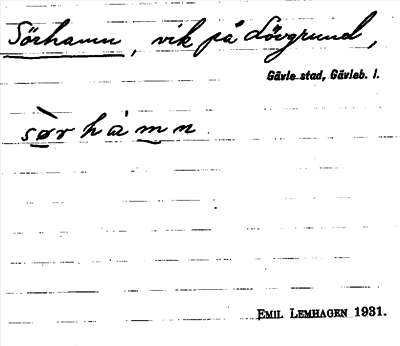 Sörhamn, vik på Lövgrund,
Gävle stad, Gävleb. l.
sø̀rhàmn
EMIL LEMHAGEN 1931.